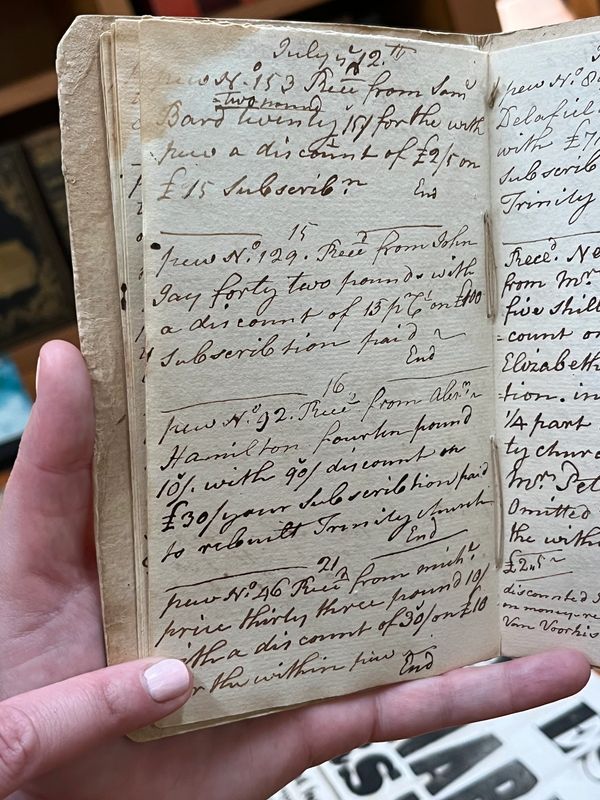 July 12.th
pew No. 153 Rece from Saml
two pound
Bard twenty 15/ for the with
pew a discount of £2/5 on
£15 Subscribn
End
15
pew No. 129. Reced from John
Jay forty two pounds with
a discount of 15 pr Ct on £100
Subscribtion paid
End
16
pew No. 92. Reced from Alexr
Hamilton fourten pound
10/. with 90/ discount on
£30/ your Subscribtion paid
to rebuilt Trinity church
End
21
pew No. 46 Reced from michl
price thirty three pound 10/
with a discount of 30/ on £10
for the within pew
End
pew No. 8
Delafiel
with £7
Subscrib
Trinity
Reced. Ne
from Mr
five shill
count on
Elizabeth
tion. in
1/4 part
ty churc
Mrs Pet
Omitted
the with
£2..5
discounted
on money re
Van Voorhis